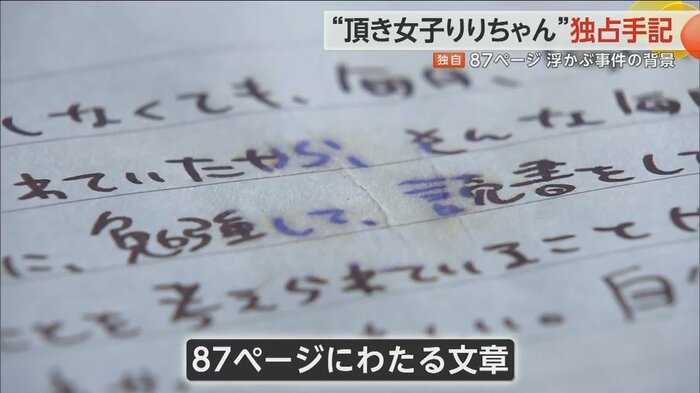 “頂き女子りりちゃん”独占手記
独自 87ページ 浮かぶ事件の背景
しなくても、毎日、
れていたから、そんな毎日
に、勉強して、読書をして
ことを考えられていること
87ページにわたる文章